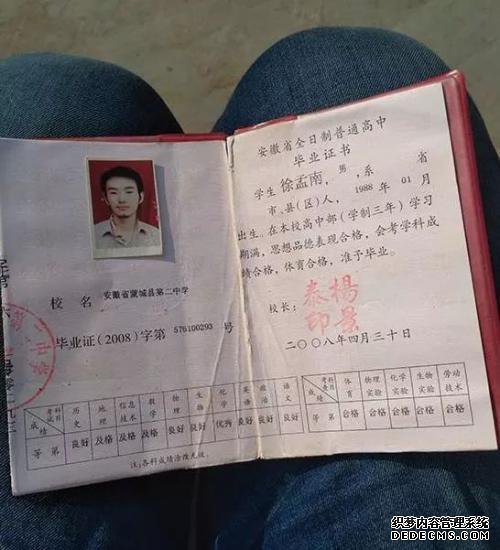 校 名 安徽省蒙城县第二中学
毕业证(2008)字第 576100293 号
成绩 考试科目 历史 地理 信息技术 数学 物理 生物 化学 英语 政治 语文
等 第 良好 及格 及格 及格 良好 良好 优秀 良好 良好 良好
注:各科成绩涂改无效。
安徽省全日制普通高中
毕业证书
学生 徐孟南,男,系 省
市、县(区)人, 1988 年 01 月
出生。在本校高中部(学制三年)学习
期满,思想品德表现合格,会考学科成
绩合格,体育合格,准予毕业。
校长:
泰楊
印景
二〇〇八年四月三十日
成绩 考查科目 体育 物理实验 化学实验 生物实验 劳动技术
等 第 合格 合格 合格 合格 合格
织梦内容管理系统
DEDECMS.COM